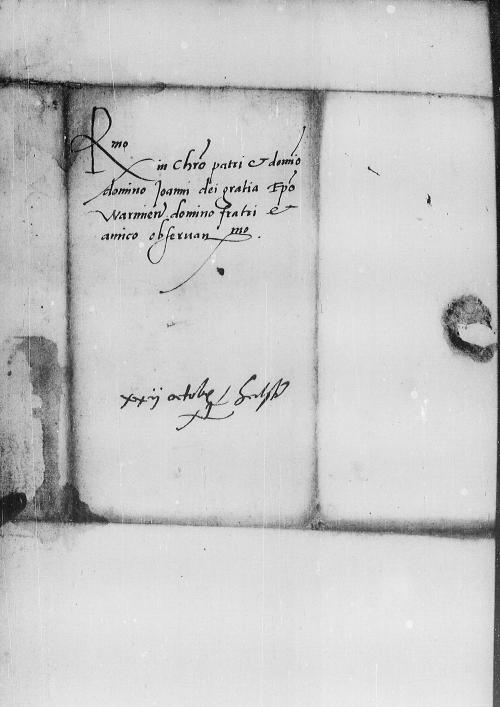 Rmo
in Chro patri et domio
domino Joanni dei gratia Epo
Warmien domino fratri et
amico observanmo.
xxij octobr